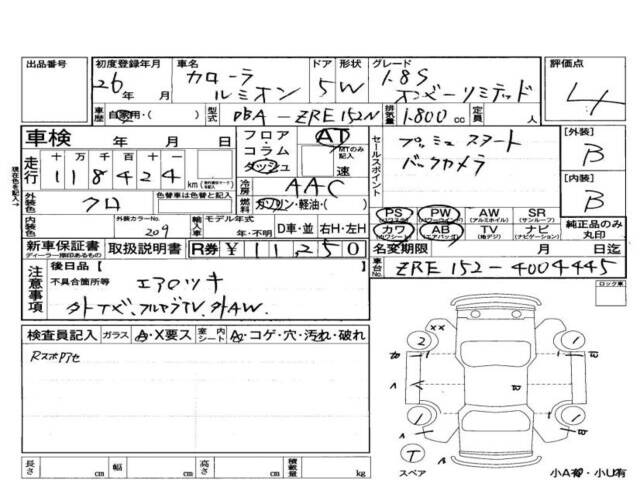 出品番号 初度登録年月 車名 ドア 形状 グレード 評価点
26年 月 カローラ ルミオン 5 W 1.8S オンビーリミテッド 4
車歴 自家用・( ) 型式 DBA-ZRE152N 排気量 1.800cc 定員 人
車検 年 月 日 フロア・コラム ダッシュ AT MTのみ記入 速 セールスポイント プッシュスタート [外装] B
走行 十万千百十一 118424 km バックカメラ [内装] B
現在色を記入→ 外装色 クロ 色替車は色替と記入 冷房 AAC 燃料 ガソリン・軽油・( )
PS PW AW (アルミホイル) SR (サンルーフ)
内装色 外装カラーNo. 209 輸入車 モデル年式 年・不明 D車・並 右H・左H カワ (カワシート) AB (エアバッグ) TV (地デジ) ナビ (ナビゲーション) 純正品のみ丸印
新車保証書 ディーラー捺印あるもの 取扱説明書 R券 ¥11,250 名変期限 月 日迄
注意事項 後日品【 】 車台No. ZRE152-4004445
不具合箇所等 エアロツキ ロック車
外ナビ、フルセグTV、外AW.
検査員記入 ガラス A・X要ス 室内シート A・コゲ・穴・汚れ・破れ
××
2 1
A
1 1
A
T
スペア
長さ cm 幅 cm 高さ cm 積載量 kg
小A有・小U有